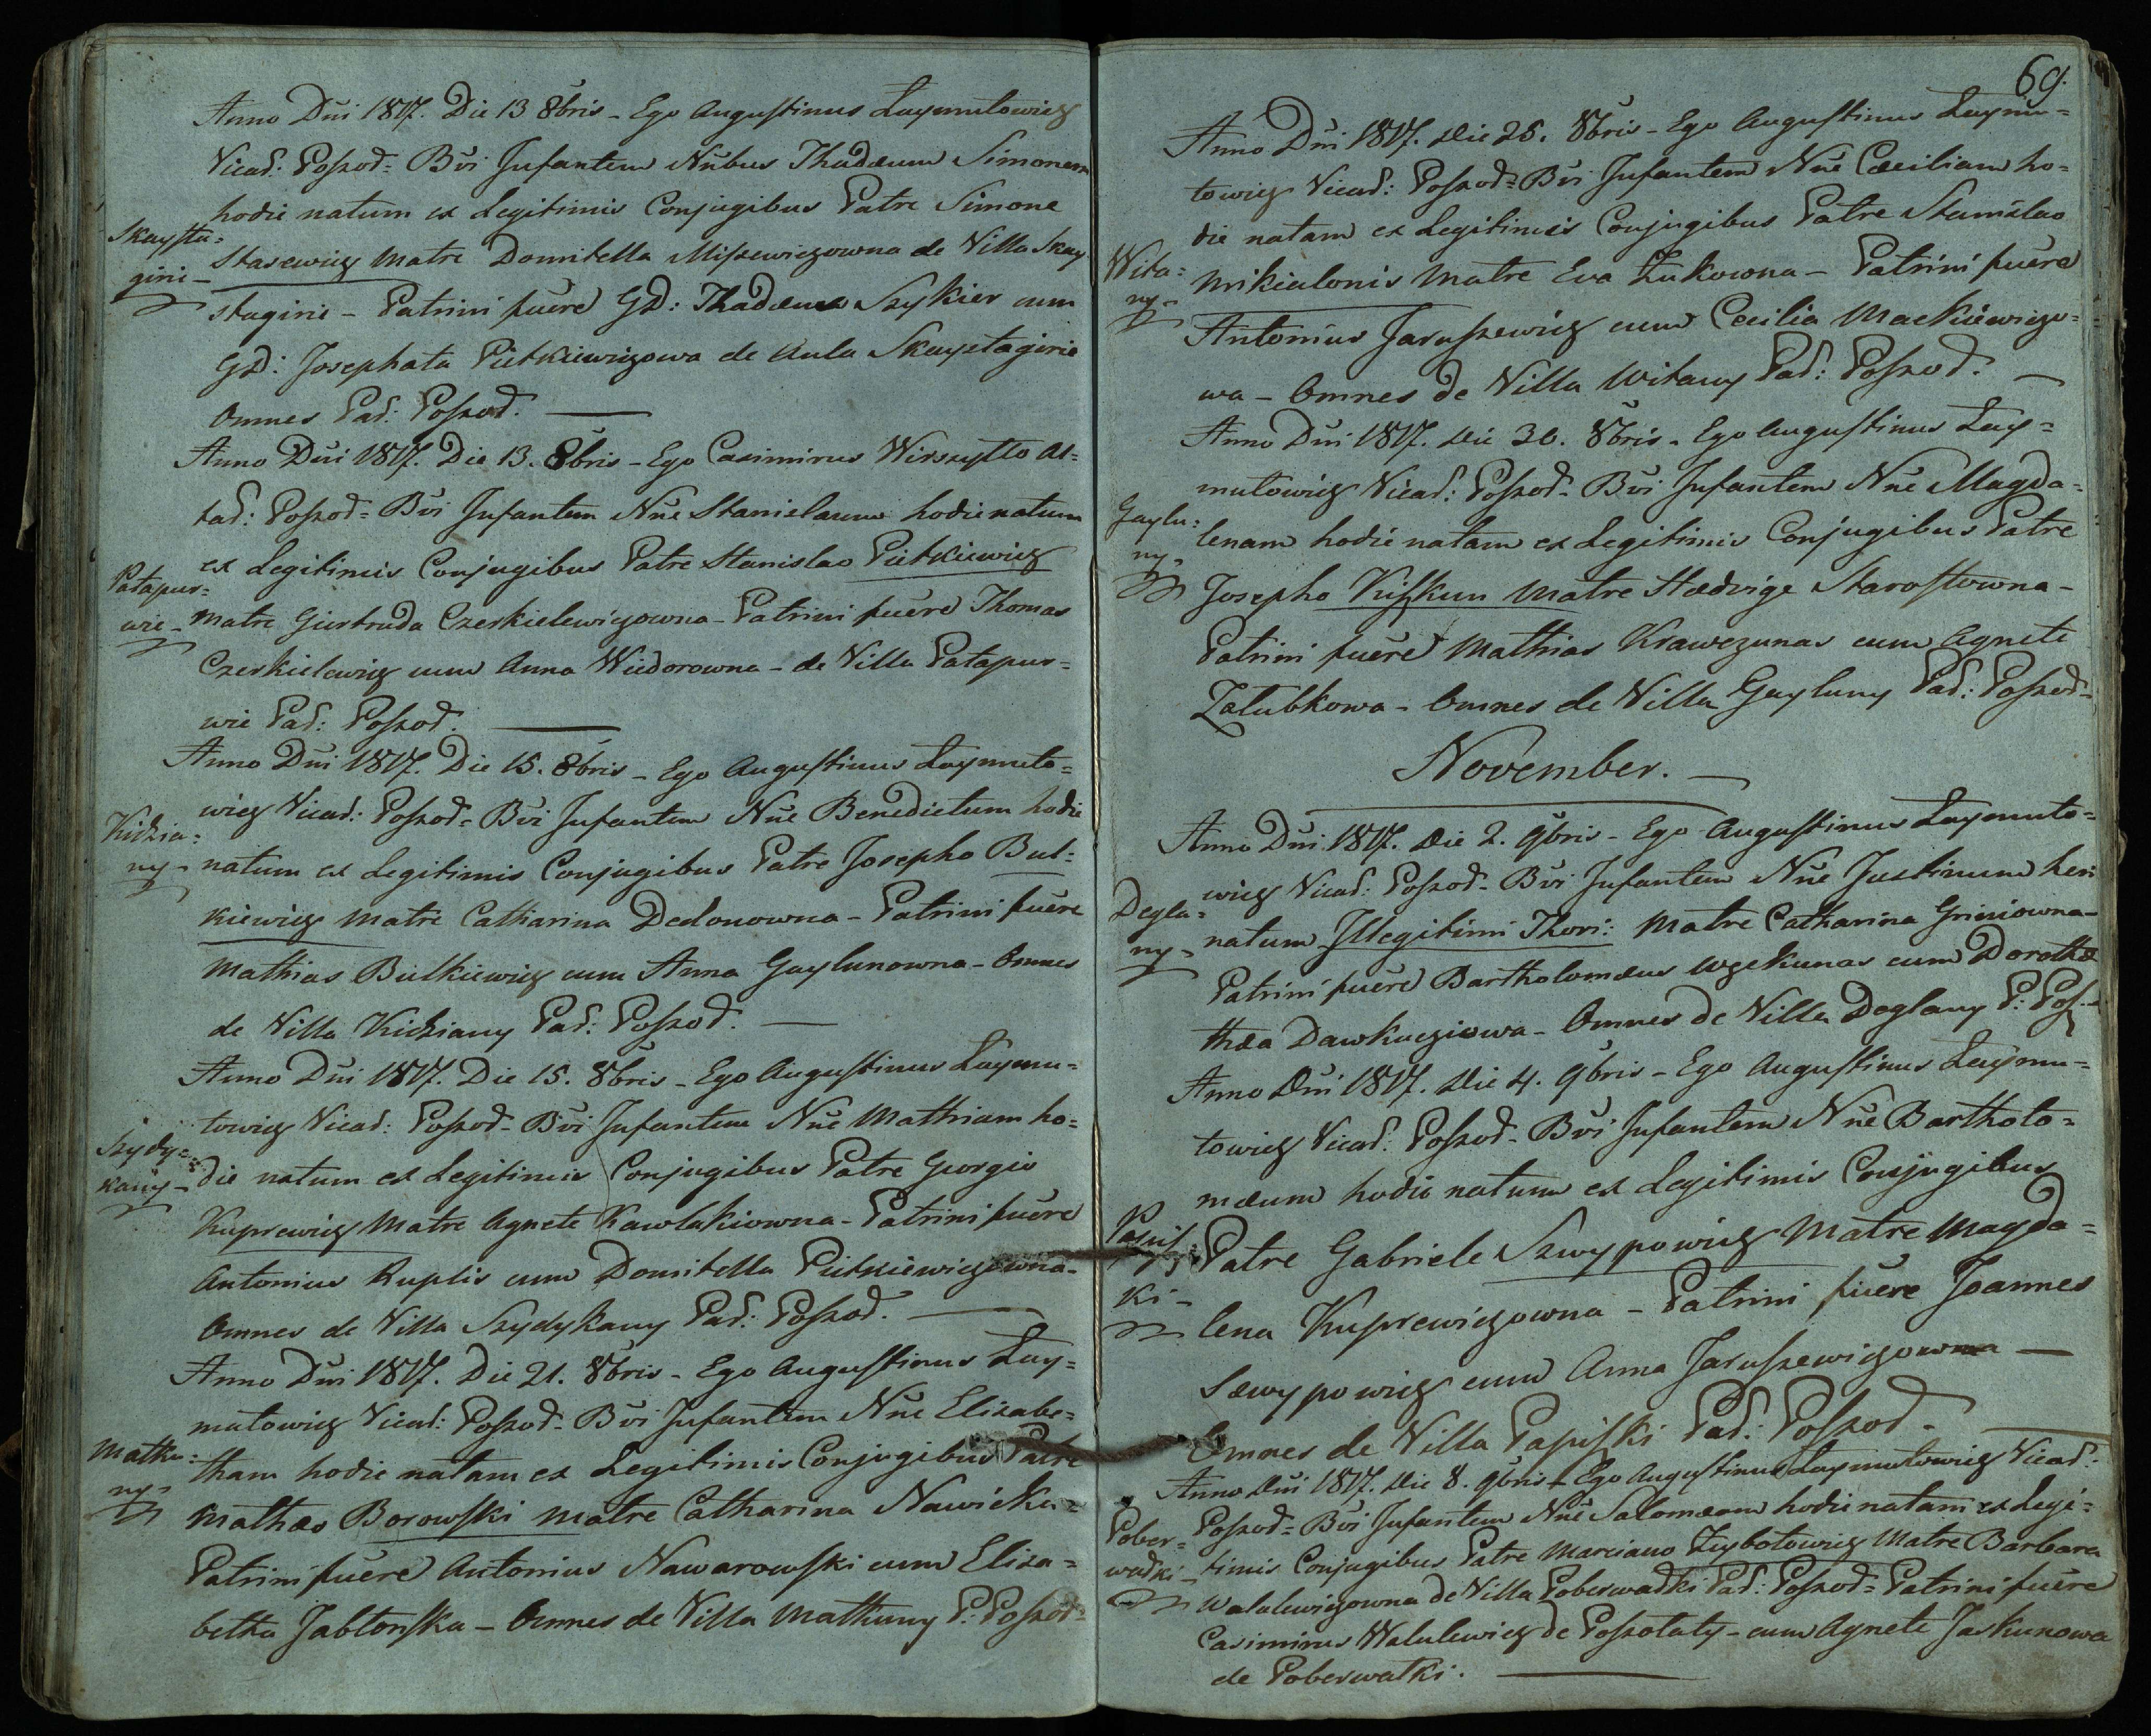 Anno Dni 1817. Die 13 8bris - Ego Augustinus Laymutowicz
Vicad: Poszod = Bvi Infantem Nnbus Thadæum Simonem
hodie natum ex Legitimis Conjugibus Patre Simone
Skaysta=
Stasewicz Matre Domitella Miszewiczowna de Villa Skay
girie -
stagirie - Patrini fuere GD: Thadæus Szykier cum
GD: Josephata Pietkiewiczowa de Aula Skaystagirie
Omnes Pad: Poszod.
Anno Dni 1817. Die 13. 8bris - Ego Casimirus Wirszytto Al=
tad: Poszod = Bvi Infantem Nne Stanislaum hodie natum
ex Legitimis Conjugibus Patre Stanislao Pietkiewicz
Patapur=
wie - Matre Giertruda Czerkielewiczowna - Patrini fuere Thomas
Czerkielewicz cum Anna Wiedorowna - de Villa Patapur=
wie Pad: Poszod.
Anno Dni 1817. Die 15. 8bris - Ego Augustinus Laymuto=
wicz Vicad: Poszod = Bvi Infantem Nne Benedictum hodie
Kidzia=
ny - natum ex Legitimis Conjugibus Patre Josepho But=
kiewicz Matre Catharina Dedonowna - Patrini fuere
Mathias Butkiewicz cum Anna Gaylunowna - Omnes
de Villa Kidziany Pad: Poszod.
Anno Dni 1817. Die 15. 8bris - Ego Augustinus Laymu=
towicz Vicad: Poszod - Bvi Infantem Nne Mathiam ho=
Szydy=
kany - die natum ex Legitimis Conjugibus Patre Georgio
Kuprewicz Matre Agnete Kawlakiowna - Patrini fuere
Antonius Kuplis cum Domitella Pietkiewiczowna -
Omnes de Villa Szydykany Pad: Poszod.
Anno Dni 1817. Die 21. 8bris - Ego Augustinus Lay=
mutowicz Vicad: Poszod - Bvi Infantem Nne Elizabe=
Matku= tham hodie natam ex Legitimis Conjugibus Patre
ny - Mathæo Borowski Matre Catharina Nawicka -
Patrini fuere Antonius Nawarowski cum Eliza=
betha Jabłonska - Omnes de Villa Mathuny P: Poszod -
69.
Anno Dni 1817. Die 25. 8bris - Ego Augustinus Laymu=
towicz Vicad: Poszod = Bvi Infantem Nne Cæciliam ho=
die natam ex Legitimis Conjugibus Patre Stanislao
Wita=
ny - Mikialonis Matre Eva Zukowna - Patrini fuere
Antonius Jaruszewicz cum Cecilia Mackiewiczo=
wa - Omnes de Villa Witany Pad: Poszod.
Anno Dni 1817. Die 30. 8bris - Ego Augustinus Lay=
mutowicz Vicad: Poszod - Bvi Infantem Nne Magda=
Gaylu=
ny - lenam hodie natam ex Legitimis Conjugibus Patre
Josepho Kiszkun Matre Hædvige Starostowna -
Patrini fuere Mathias Krawczunas cum Agnete
Załubkowa - Omnes de Villa Gayluny Pad: Poszod -
November.
Anno Dni 1817. Die 2. 9bris - Ego Augustinus Laymuto=
wicz Vicad: Poszod - Bvi Infantem Nne Justinum heri
Degla=
ny - natum Illegitimi Thori: Matre Catharina Griniowna -
Patrini fuere Bartholomæus Wzekunas cum Dorothæ
thæa Dawkuziowa - Omnes de Villa Deglany P: Pos.
Anno Dni 1817. Die 4. 9bris - Ego Augustinus Laymu=
towicz Vicad: Poszod - Bvi Infantem Nne Bartholo=
mæum hodie natum ex Legitimis Conjugibus
Papis=
Patre Gabriele Szwypowicz Matre Magda=
ki -
lena Kuprewiczowna - Patrini fuere Joannes
Szwypowicz cum Anna Jaruszewiczowna
Omnes de Villa Papiszki Pad: Poszod -
Anno Dni 1817. Die 8. 9bris - Ego Augustinus Laymutowicz Vicad:
Pober= Poszod = Bvi Infantem Nne Salomæam hodie natam ex Legi=
wadki - timis Conjugibus Patre Marciano Zybotowicz Matre Barbara
Walulewiczowna de Villa Poberwadki Pad: Poszod = Patrini fuere
Casimirus Walulewicz de Poszolaty - cum Agnete Jaskunowa
de Poberwatki.